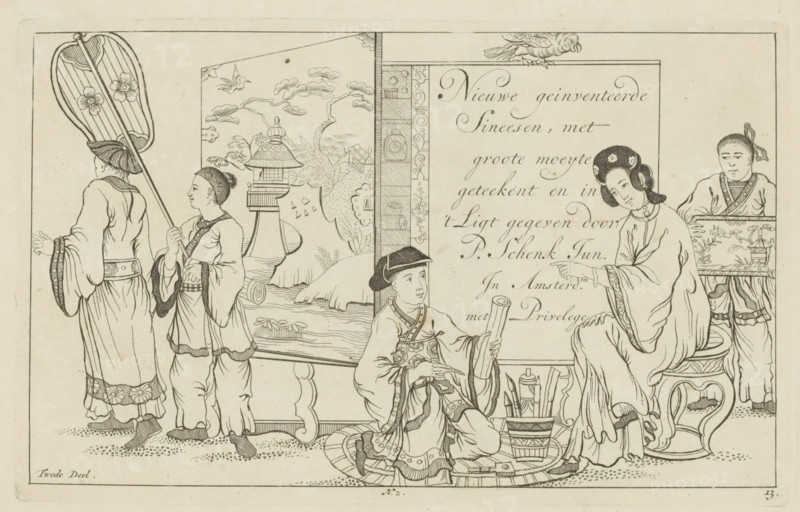 Nieuwe geinventeerde
Sineesen, met
groote moeyte
geteekent en in
't Ligt gegeven door
P. Schenk Jun.
In Amsterd.
met Privelege
Twede Deel.
N. 2.
13.